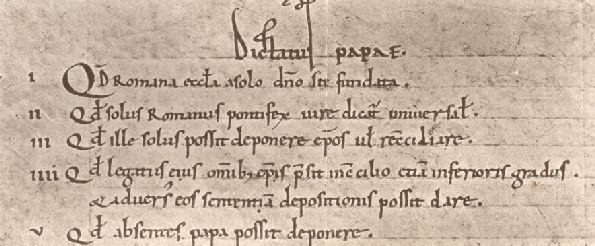 Dictatus papae.
i Qd Romana eccla a solo dno sit fundata.
ii Qd solus Romanus pontifex iure dicat universal.
iii Qd ille solus possit deponere epos vl reciliare.
iiii Qd legatus eius omib; epis psit in cilio etia inferioris gradus.
& advers eos sententia depositionis possit dare.
v Qd absentes papa possit deponere.